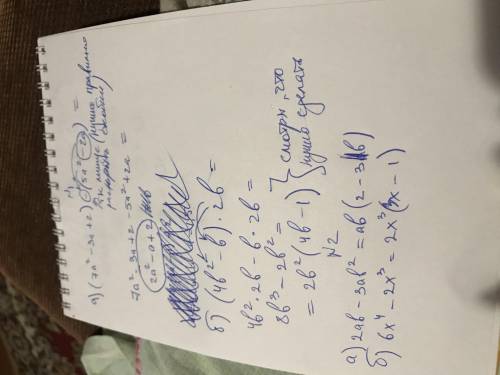 а) (7a² - 3a + 2) - (5a² - 2a) =
Где минус нужно правильно
раскрыть скобки
7a² - 3a + 2 - 5a² + 2a =
2a² - a + 2
б) (4b² - b) · 2b =
4b² · 2b - b · 2b =
8b³ - 2b² =
= 2b² (4b - 1)
смотри, что
нужно сделать
N2
а) 2ab - 3ab² = ab (2 - 3b)
б) 6x⁴ - 2x³ = 2x³ (3x - 1)